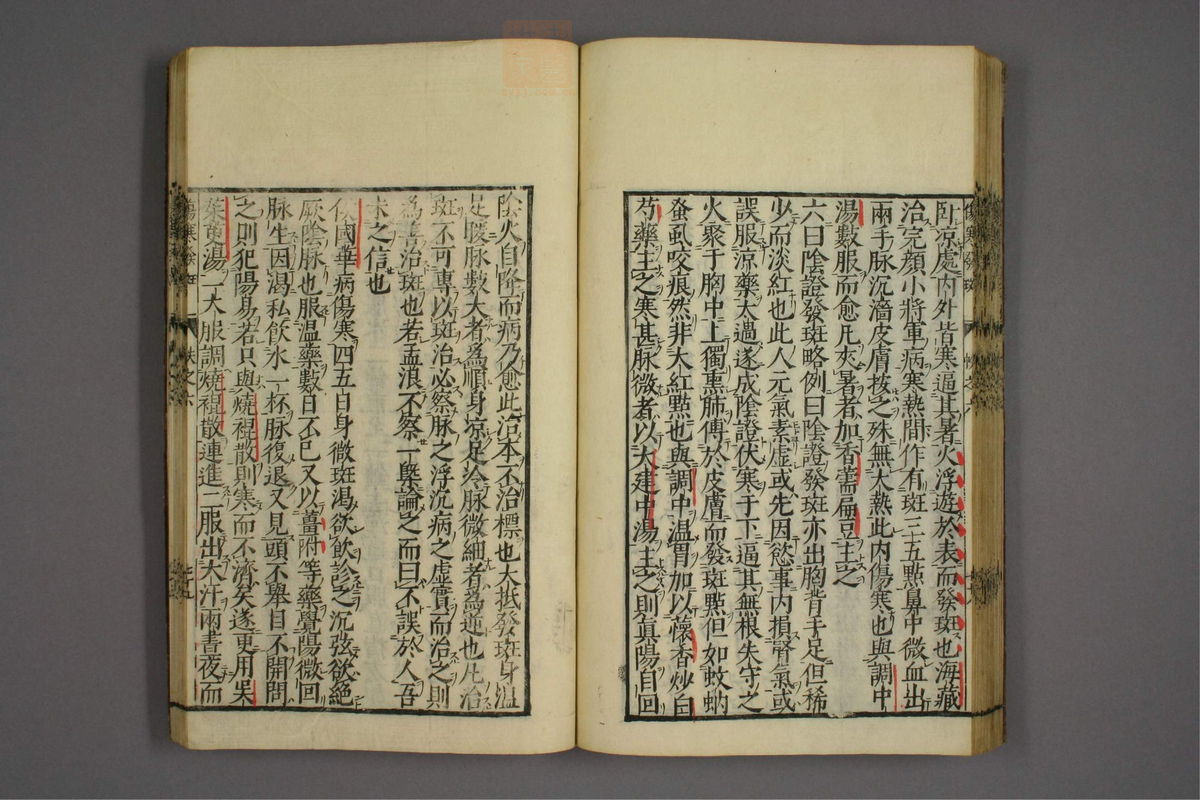 臥凉處内外皆寒逼其暑火浮遊於表而發斑也海藏
治完顔小將軍病寒熱間作有斑三五點鼻中微血出
兩手脉沉濇皮膚按之殊無大熱此内傷寒也與調中
湯數服而愈凡夾暑者加香薷扁豆主之
六曰陰證發斑略例曰陰證發斑亦出胸背手足但稀
少而淡紅也此人元氣素虚或先因慾事内損腎氣或
誤服凉藥太過遂成陰證伏寒于下逼其無根失守之
火聚于胸中上獨熏肺傳於皮膚而發斑㸃但如蚊蚋
蚤虱咬痕然非大紅㸃也與調中温胃加以懷香炒白
芍藥主之寒甚脉微者以大建中湯主之則眞陽自回
陰火自降而病乃愈此治本不治標也大抵發斑身温
足暖脉數大者爲順身凉足冷脉微細者爲逆也凡治
斑不可專以斑治必察脉之浮沉病之虚實而治之則
爲善治斑也若孟浪不察一槩論之而曰不誤於人吾
未之信也
侯國華病傷寒四五日身微斑渴欲飲診之沉弦欲絶
厥陰脉也服温藥數日不已又以薑附等藥覺陽微回
脉生因渴私飲水一杯脉復退又見頭不舉目不開問
之則犯陽易若只與燒裩散則寒而不濟矣遂更用吳
茱萸湯一大服調燒裩散連進二服出大汗兩晝夜而
傷寒發斑
帙之六